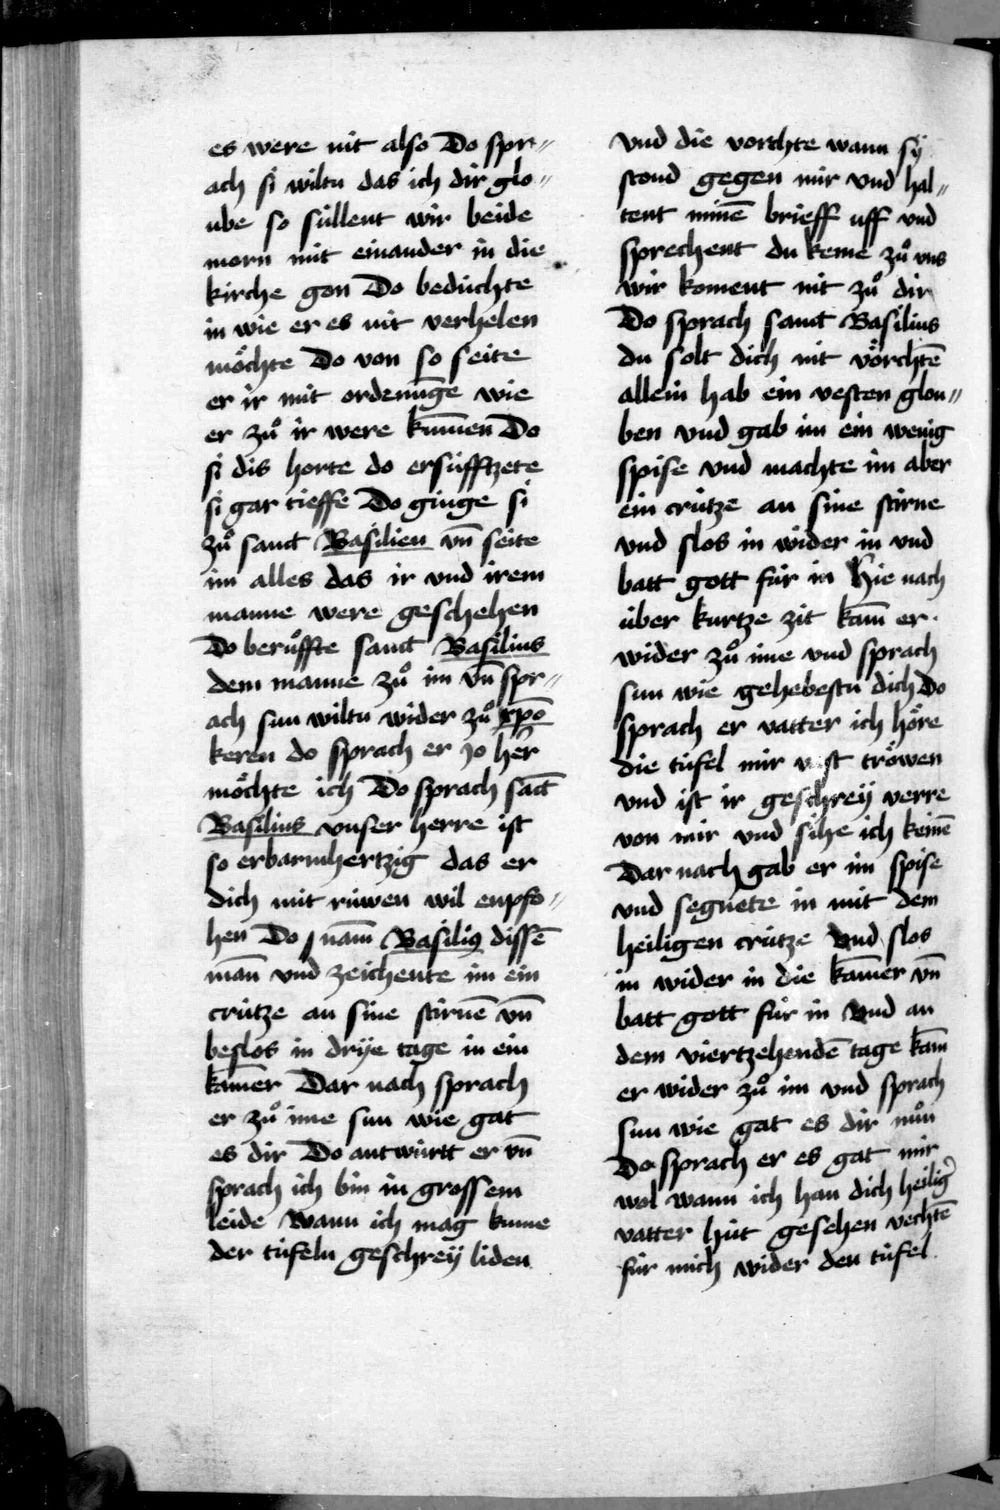 es were nit also Do spr〃
ach si wiltu das ich dir glo〃
ube so süllent wir beide
morn mit einander in die
kirche gon Do beduchte
in wie er es nit verhelen
möchte Do von so seite
er ir mit ordenūge wie
er zuͦ ir were kum̄en Do
si dis horte do ersufftzete
si gar tieffe Do ginge si
zuͦ sanct Basilien vn̄ seite
im alles das ir vnd irem
manne were geschehen
Do beruͦffte sanct Basilius
dem manne zuͦ im vn̄ spr〃
ach sun wiltu wider zuͦ xp̄o
keren do sprach er Jo her̄
möchte ich Do sprach sāct
Basilius vnser herre ist
so erbarmhertzig das er
dich mit rüwen wil enpfo〃
hen Do nam̄ Basiliꝰ dissē
man̄ vnd zeichente im ein
crütze an sine stirnē vn̄
beslos in drÿe tage in ein
kam̄er Dar nach sprach
er zuͦ ime sun wie gat
es dir Do antwürtt er vn̄
sprach ich bin in grossem
leide Wann ich mag kume
der tüfeln geschreÿ liden
vnd die vorchte wann sÿ
stond gegen mir vnd hal〃
tent minē brieff uff vnd
sprechent du keme zuͦ vns
wir koment nit zuͦ dir
Do sprach sanct Basilius
du solt dich nit vörchtē
allein hab ein vesten glou〃
ben vnd gab im ein wenig
spise vnd machte im aber
ein crütze an sine stirne
vnd slos in wider in vnd
batt gott für in Hie nach
über kurtze zit kam̄ er
wider zuͦ ime vnd sprach
sun wie gehebestu dich Do
sprach er vatter ich höre
die tüfel mir vast tröwen
vnd ist ir geschreÿ verre
von mir vnd sihe ich keinē
Dar nach gab er im spise
vnd segnete in mit dem
heiligen crütze Vnd slos
in wider in die kam̄er vn̄
batt gott für in Vnd an
dem viertzehendē tage kam̄
er wider zuͦ im vnd sprach
sun wie gat es dir nuͦn
Do sprach er es gat mir
wol wann ich han dich heilig̉
vatter hüt gesehen vechtē
für mich wider den tüfel